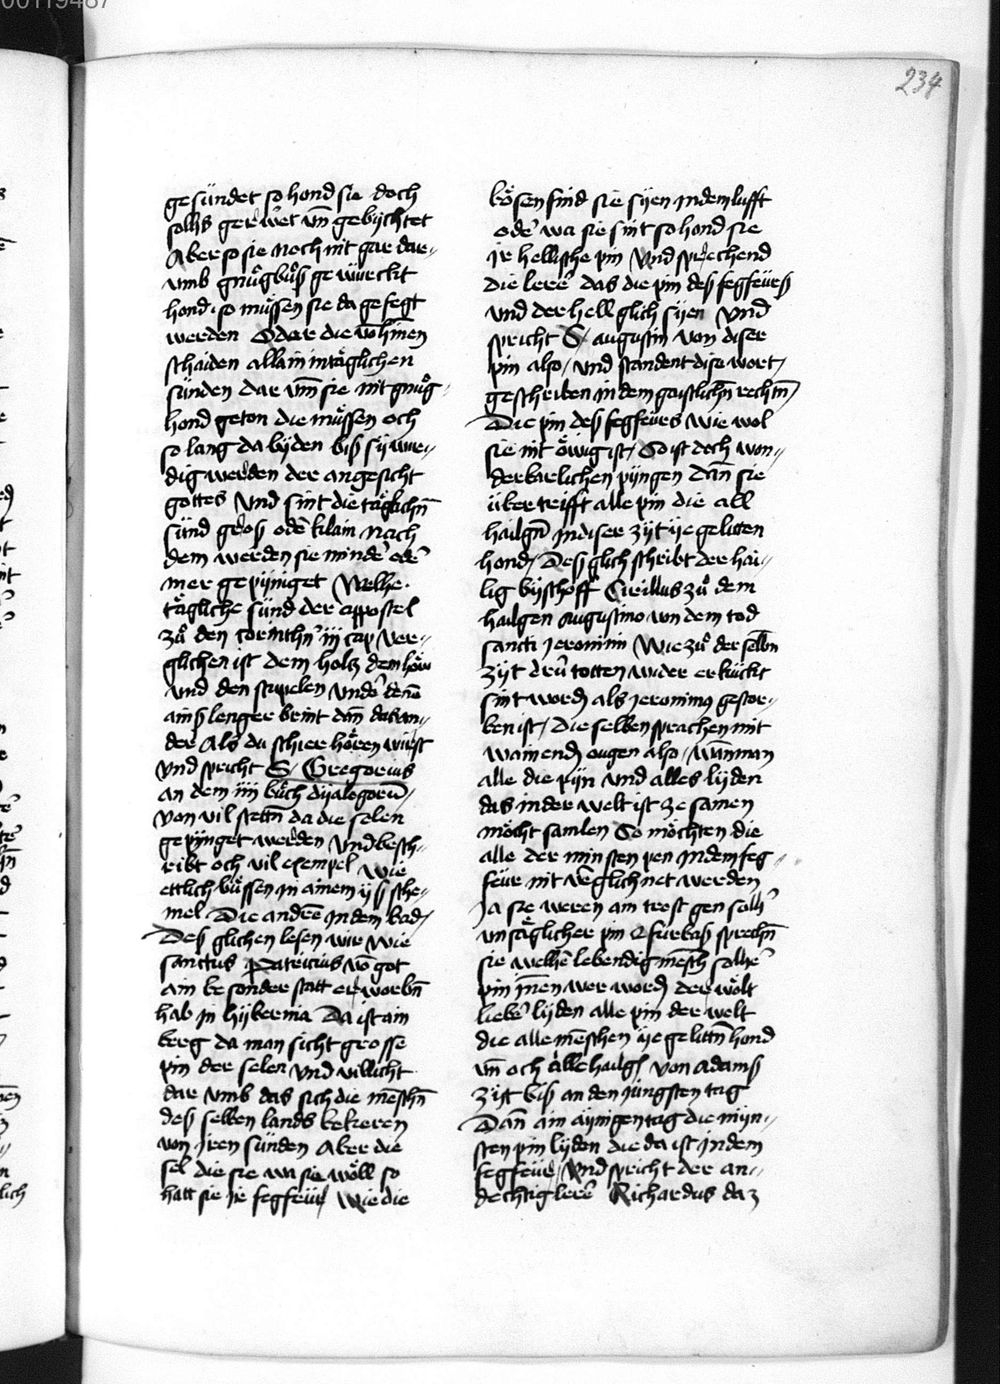 00119487
234
gesündet so hond sie doch
sollis gerüwet vn̄ gebÿchtet
Aber so sie noch nit gar dar-
vmb gnuͦgbuͦß gewürckt
hond · so müssen sie da gefegt
werden Oder die vō hinnen
schaiden allain in täglichen
sünden dar vm̄ sie nit gnuͦg-
hond geton die müssen och
so lang da lyden biß sÿ wir-
dig werden der angesicht
gottes Vnd sint die täglichn̄
sünd groß ode᷑ klain nach
dem werden sie minde᷑ ode᷑
mer gepÿniget Welhe
tägliche sünd der appostel
zuͦ den corinthn̄ iij cap ver-
glichen ist dem holtz dem höw
vnd den stupfelen vnde᷑ denē
ains lenger brint dan̄ das an-
der Als du schier hören wirst
Vnd spricht S Gregorius
an dem iiij buͦch dÿalogorū
von vil stettn̄ da die selen
gepÿnget werden Vnd besch-
ribt och vil exempel wie
ettlich büssen in ainem ÿß sche-
mel Die andrē in dem bad
Deß glichen lesen wir wie
sanctus Patricius vō got
ain besonder statt erworbn̄
hab in hÿbernia Da ist ain
berg da man sicht grosse
pin der selen vnd villicht
dar vmb das sich die mēschn̄
deß selben lands bekeren
von iren sünden Aber die
sel die sie wa sie wöll so
hatt sie ir fegfeür Wie die
bösen find sie sÿen in dem lufft
ode᷑ wa sie sint so hond sie
ir hellische pin Vnd sprechend
die lere᷑ das die pin deß fegfeürß
vnd der hell glich sÿen Vnd
spricht S augustin von diser
pin also / vnd standent dise wort
geschriben in dem gaystlichn̄ rechtn̄
Die pin deß fegfeürs wie wol
sie nit ewig ist / So ist doch won-
derbarlichen pÿngen dan̄ sie
übertrifft alle pin die all
hailgn̄ in diser zÿt ÿe gelitten
hond Deß glich schribt der hai-
lig bÿschoff Cirillus zuͦ dem
hailgen augustino von dem tod
sancti Jeronimi Wie zuͦ der selbn̄
zÿt drü totten wider erkückt
sint word als Jeronimus gestor-
ben ist / die selben sprachen mit
wainend ougen also / Wan̄ man
alle die pÿn vnd alles lÿden
das in der welt ist ze samen
möcht samlen So möchten die
alle der minsten pen in dem feg
feür nit v᷑glichnet werden
Ja sie weren ain trost gen sollh᷑
vnsäglicher pin furbaß sprechn̄
sie welhe᷑ lebendig mēsch solhe᷑
pin inen wer word der wölt
liebe᷑ lÿden alle pin der welt
die alle mēschen ÿe gelittn̄ hond
vn̄ och alle hailgē von adamß
zÿt biß an den jüngsten tag
Dan̄ ain aÿnigen tag die mÿn-
sten pin lÿden die da ist in dem
fegfeür / Vnd spricht der an-
dechtig lere᷑ Richardus daz